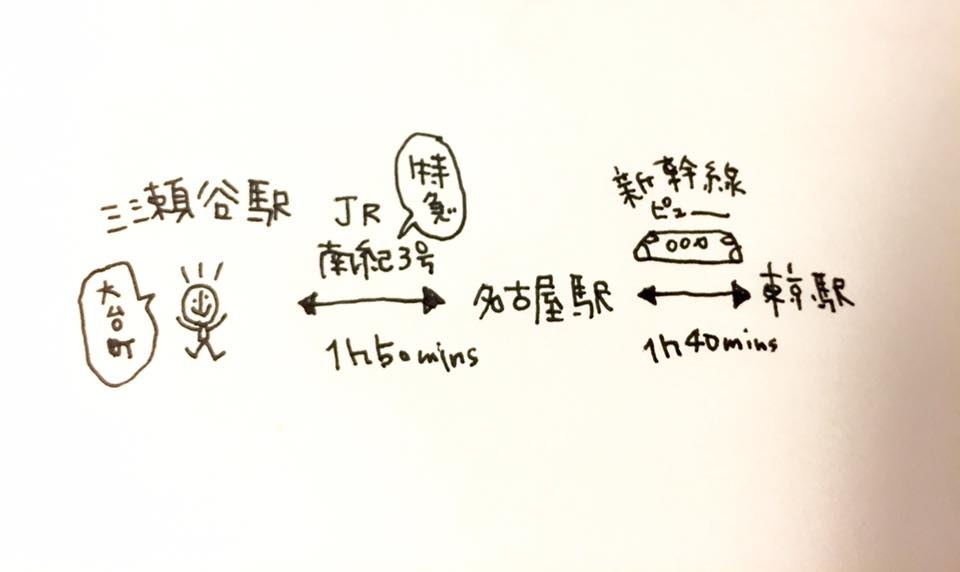 三瀬谷駅
大台町
JR
特急
南紀3号
1h50mins
名古屋駅
新幹線
ピュー
1h40mins
東京駅